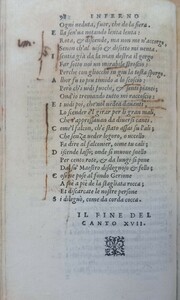 98 INFERNO
Ogni veduta, fuor, che della fiera.
Ella sen'va notando lenta lenta:
Rota, & discende, ma non me n'accorgo,
Senon ch'al viso & disotto mi venta.
I sentia già da la man destra il gorgo
Far sotto noi un
Perche con gli occhi in giu la testa sporgo.
Allhor fu io piu timido a lo
Però ch'i vidi fuochi, & senti pianti;
Ond'io tremando tutto mi raccoscio.
E vidi poi, che nol vedea davanti,
Lo scender e'l girar per li gran mali,
Che s'appressavan da diversi canti.
Come'l falcon, ch'è stato assai su l'ali;
Che senza veder logoro, o uccello
Fa dire al falconier, oime tu cali:
Discende lasso, onde si mosse snello
Per cento rote, & da lungi si pone
Dal suo Maestro disdegnoso & fello;
Così ne pose al fondo Gerione
A piè a piè de la stagliata rocca:
Et discarcate le nostre persone
Si dileguò, come da corda cocca.
IL FINE DEL
CANTO XVII.